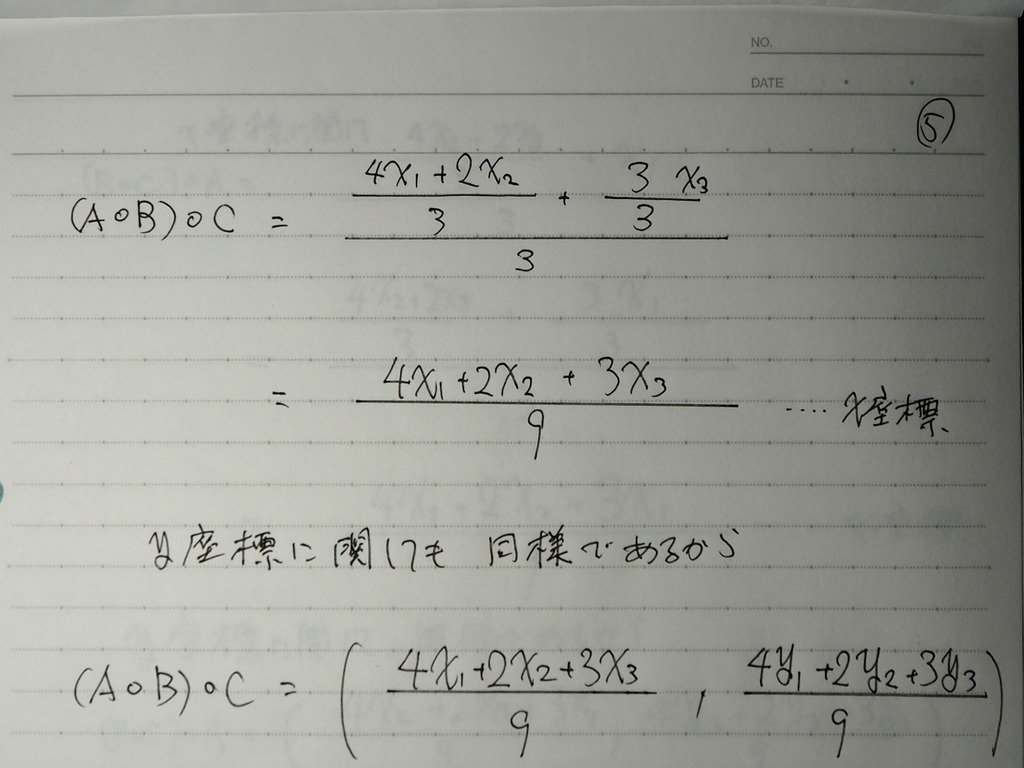 NO.
DATE
⑤
(A∘B)∘C = ((4x₁+2x₂)/3 + (3 x₃)/3)/3
= (4x₁+2x₂+3x₃)/9 ････ x座標
y座標に関しても 同様であるから
(A∘B)∘C = ((4x₁+2x₂+3x₃)/9 , (4y₁+2y₂+3y₃)/9)